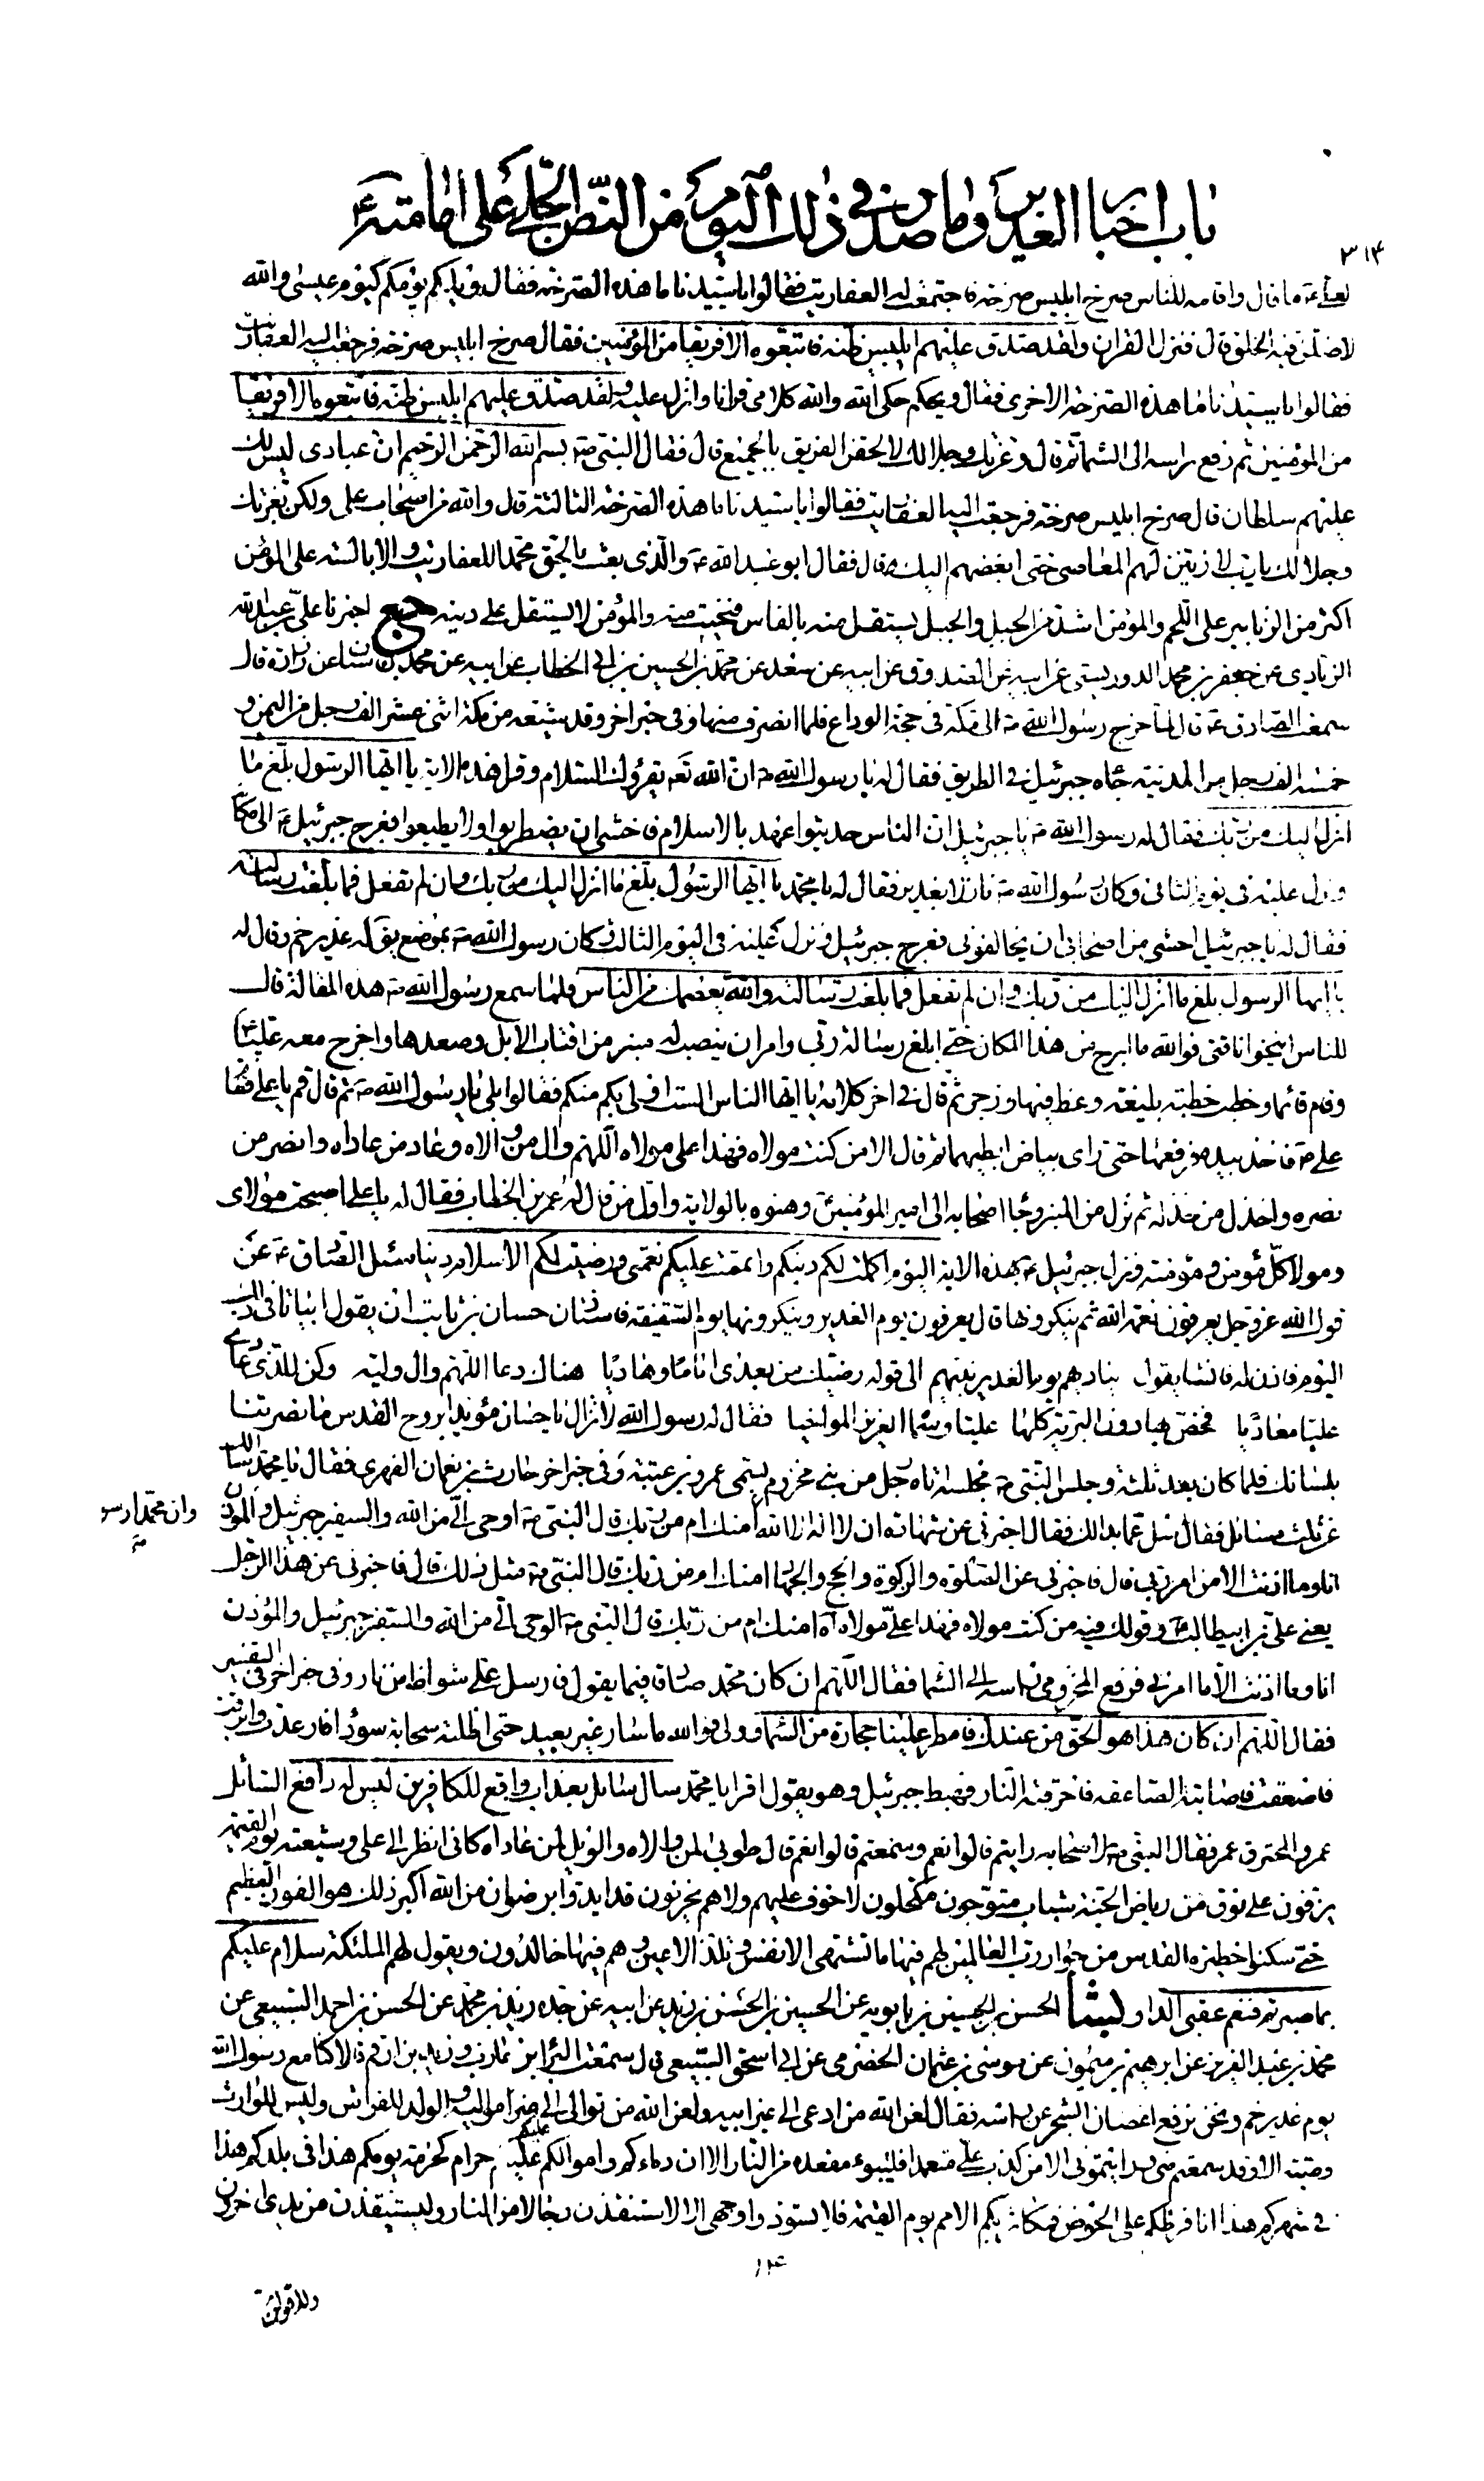 باب اخبار الغدير وما صدر في ذلك اليوم من النص الجلي على امامته ع
٣١٤
لعلي ع ما قال واقامه للناس صرخ ابليس صرخة فاجتمعت له العفاريت فقالوا يا سيدنا ما هذه الصرخة فقال ويلكم يومكم كيوم عيسى والله
لاضلن فيه الخلق قال فنزل القران ولقد صدق عليهم ابليس ظنه فاتبعوه الا فريقا من المؤمنين فقال صرخ ابليس صرخة فرجعت اليه العفاريت
فقالوا يا سيدنا ما هذه الصرخة الاخرى فقال ويحكم حكى الله والله كلامي قرانا وانزل عليه ولقد صدق عليهم ابليس ظنه فاتبعوه الا فريقا
من المؤمنين ثم رفع راسه الى السماء ثم قال وعزتك وجلالك لالحقن الفريق بالجميع قال فقال النبي ص بسم الله الرحمن الرحيم ان عبادي ليس لك
عليهم سلطان قال صرخ ابليس صرخة فرجعت اليه العفاريت فقالوا يا سيدنا ما هذه الصرخة الثالثة قال والله من اصحاب علي ولكن بعزتك
وجلالك يا رب لازينن لهم المعاصي حتى ابغضهم اليك قال فقال ابو عبد الله ع والذي بعث بالحق محمدا للعفاريت والابالسة على المؤمن
اكثر من الزنابير على اللحم والمؤمن اشد من الجبل والجبل يستقل منه بالفاس فينحت منه والمؤمن لا يستقل على دينه اخبرنا علي بن عبد الله
الزيادي عن جعفر بن محمد الدوريستي عن ابيه عن الصدوق عن ابيه عن سعد عن محمد بن الحسين بن ابي الخطاب عن ابيه عن محمد بن سنان عن زرارة قال
سمعت الصادق ع قال لما خرج رسول الله ص الى مكة في حجة الوداع فلما انصرف منها وفي خبر اخر وقد شيعه من مكة اثنى عشر الف رجل من اليمن و
خمسة الف رجل من المدينة جاه جبرئيل في الطريق فقال له يا رسول الله ص ان الله تع يقرؤك السلام وقرا هذه الاية يا ايها الرسول بلغ ما
انزل اليك من ربك فقال له رسول الله ص يا جبرئيل ان الناس حديثوا عهد بالاسلام فاخشى ان يضطربوا ولا يطيعوا فعرج جبرئيل ع الى مكا
ونزل عليه في يوم الثاني وكان رسول الله ص نازلا بغدير فقال له يا محمد يا ايها الرسول بلغ ما انزل اليك من ربك وان لم تفعل فما بلغت رسالته
فقال له يا جبرئيل اخشى من اصحابي ان يخالفوني فعرج جبرئيل ونزل عليه في اليوم الثالث وكان رسول الله ص بموضع يق له غدير خم وقال له
يا ايها الرسول بلغ ما انزل اليك من ربك وان لم تفعل فما بلغت رسالته والله يعصمك من الناس فلما سمع رسول الله ص هذه المقالة قال
للناس انيخوا ناقتي فوالله ما ابرح من هذا المكان حتى ابلغ رسالة ربي وامر ان ينصب له منبر من اقتاب الابل وصعدها واخرج معه عليا ع
وقام قائما وخطب خطبة بليغة وعظ فيها وزجر ثم قال في اخر كلامه يا ايها الناس الست اولى بكم منكم فقالوا بلى يا رسول الله ص ثم قال قم يا علي فقا
علي ع فاخذ بيده فرفعها حتى راى بياض ابطيهما ثم قال الا من كنت مولاه فهذا علي مولاه اللهم وال من والاه وعاد من عاداه وانصر من
نصره واخذل من خذله ثم نزل من المنبر وجا اصحابه الى امير المؤمنين وهنوه بالولاية واول من قال له عمر بن الخطاب فقال له يا علي اصبحت مولاي
ومولا كل مؤمن ومؤمنة ونزل جبرئيل ع بهذه الاية اليوم اكملت لكم دينكم واتممت عليكم نعمتي ورضيت لكم الاسلام دينا سئل الصادق ع عن
قول الله عز وجل يعرفون نعمة الله ثم ينكرونها قال يعرفون يوم الغدير وينكرونها يوم السقيفة فاستاذن حسان بن ثابت ان يقول ابياتا في ذلك
اليوم فاذن له فانشا يقول يناديهم يوم الغدير نبيهم الى قوله رضيتك من بعدي اماما وهاديا هناك دعا اللهم وال وليه وكن للذي عادى
عليا معاديا فخص بها دون البرية كلها عليا وسماه العزيز المواخيا فقال له رسول الله لا تزال يا حسان مؤيدا بروح القدس ما نصرتنا
بلسانك فلما كان بعد ثلثة وجلس النبي ص مجلسه اتاه رجل من بني مخزوم يسمى عمرو بن عتبة وفي خبر اخر حارث بن نعمان الفهري فقال يا محمد اسالك
عن ثلث مسائل فقال سل عما بدا لك فقال اخبرني عن شهادة ان لا اله الا الله امنك ام من ربك قال النبي ص اوحي الي من الله والسفير جبرئيل والمؤذن
وان محمدا رسو
ص
انا وما اذنت الا من امر ربي قال فاخبرني عن الصلوة والزكوة والحج والجهاد امنك ام من ربك قال النبي ص مثل ذلك قال فاخبرني عن هذا الرجل
يعني علي بن ابيطالب ع وقولك فيه من كنت مولاه فهذا علي مولاه اه امنك ام من ربك قال النبي ص الوحي الي من الله والسفير جبرئيل والمؤذن
انا وما اذنت الا ما امرني فرفع المخزومي راسه الى السما فقال اللهم ان كان محمد صادقا فيما يقول فارسل علي شواظا من نار وفي خبر اخر في التفسير
فقال اللهم ان كان هذا هو الحق من عندك فامطر علينا حجارة من السماء وولى فوالله ما سار غير بعيد حتى اظلته سحابة سودا فارعدت وابرقت
فاصعقت فاصابته الصاعقة فاحرقته النار فهبط جبرئيل وهو يقول اقرا يا محمد سال سائل بعذاب واقع للكافرين ليس له دافع السائل
عمر والمحترق عمر فقال النبي ص لاصحابه رايتم قالوا نعم وسمعتم قالوا نعم قال طوبى لمن والاه والويل لمن عاداه كاني انظر الى علي وشيعته يوم القيمة
يزفون على نوق من رياض الجنة شباب متوجون مكحلون لا خوف عليهم ولا هم يحزنون قد ايدوا برضوان من الله اكبر ذلك هو الفوز العظيم
حتى سكنوا حظيرة القدس من جوار رب العالمين لهم فيها ما تشتهي الانفس وتلذ الاعين وهم فيها خالدون ويقول لهم الملئكة سلام عليكم
بما صبرتم فنعم عقبى الدار الحسن بن الحسين بن بابويه عن الحسين بن الحسن بن زيد عن ابيه عن جده زيد بن محمد عن الحسن بن احمد السبيعي عن
محمد بن عبد العزيز عن ابرهيم بن ميمون عن موسى بن عثمان الحضرمي عن ابي اسحق السبيعي قال سمعت البراء بن عازب وزيد بن ارقم قالا كنا مع رسول الله
يوم غدير خم ونحن نرفع اغصان الشجر عن راسه فقال لعن الله من ادعى الى غير ابيه ولعن الله من توالى الى غير مواليه والولد للفراش وليس للوارث
وصية الا وقد سمعتم مني ورايتموني الا من كذب علي متعمدا فليتبوء مقعده من النار الا ان دماءكم واموالكم عليكم حرام كحرمة يومكم هذا في بلدكم هذا
في شهركم هذا انا فرطكم على الحوض فمكاثر بكم الامم يوم القيمة فلا تسودوا وجهي الا لاستنقذن رجالا من النار وليستنقذن من يدي اخرون
وللاقولن